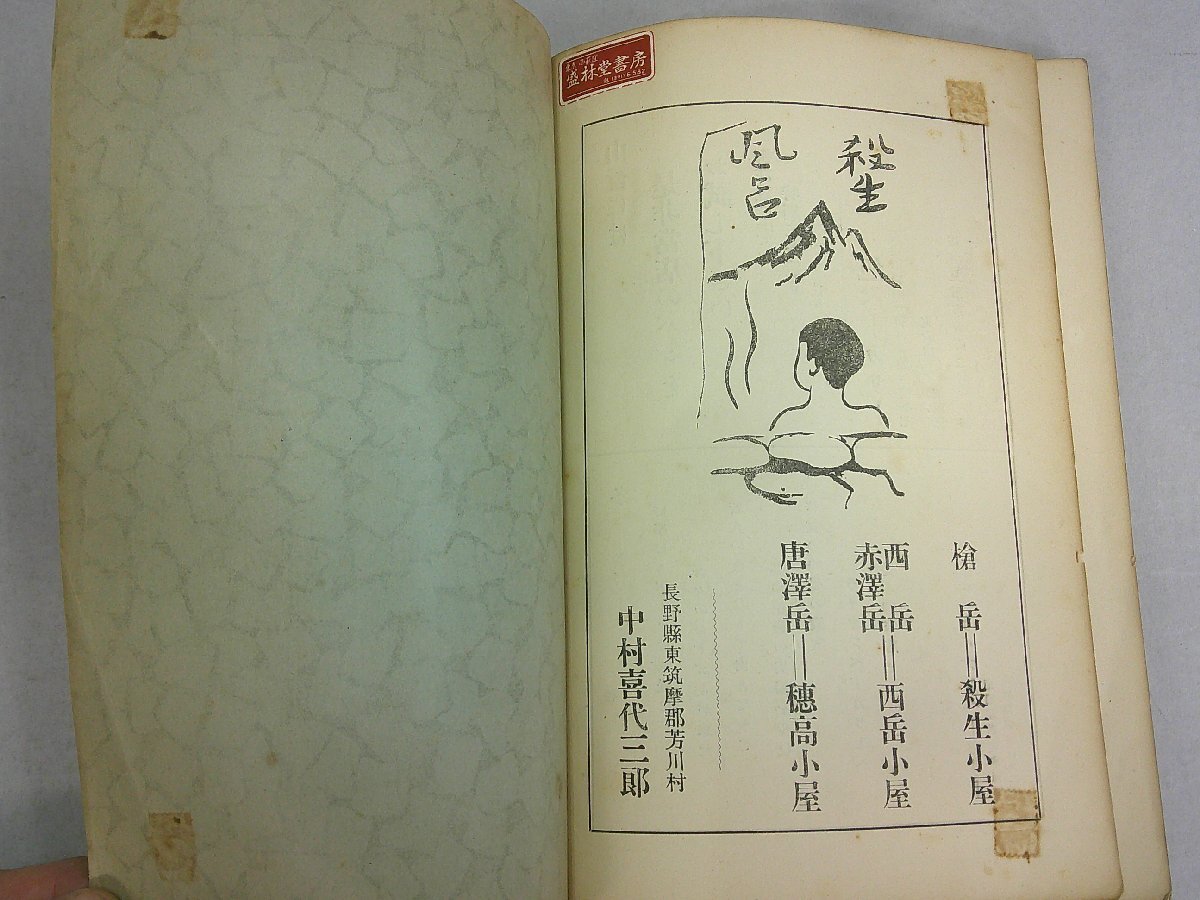 盛林堂書房
殺生
風呂
槍岳＝殺生小屋
西岳
赤澤岳＝西岳小屋
唐澤岳＝穗高小屋
長野縣東筑摩郡芳川村
中村喜代三郎